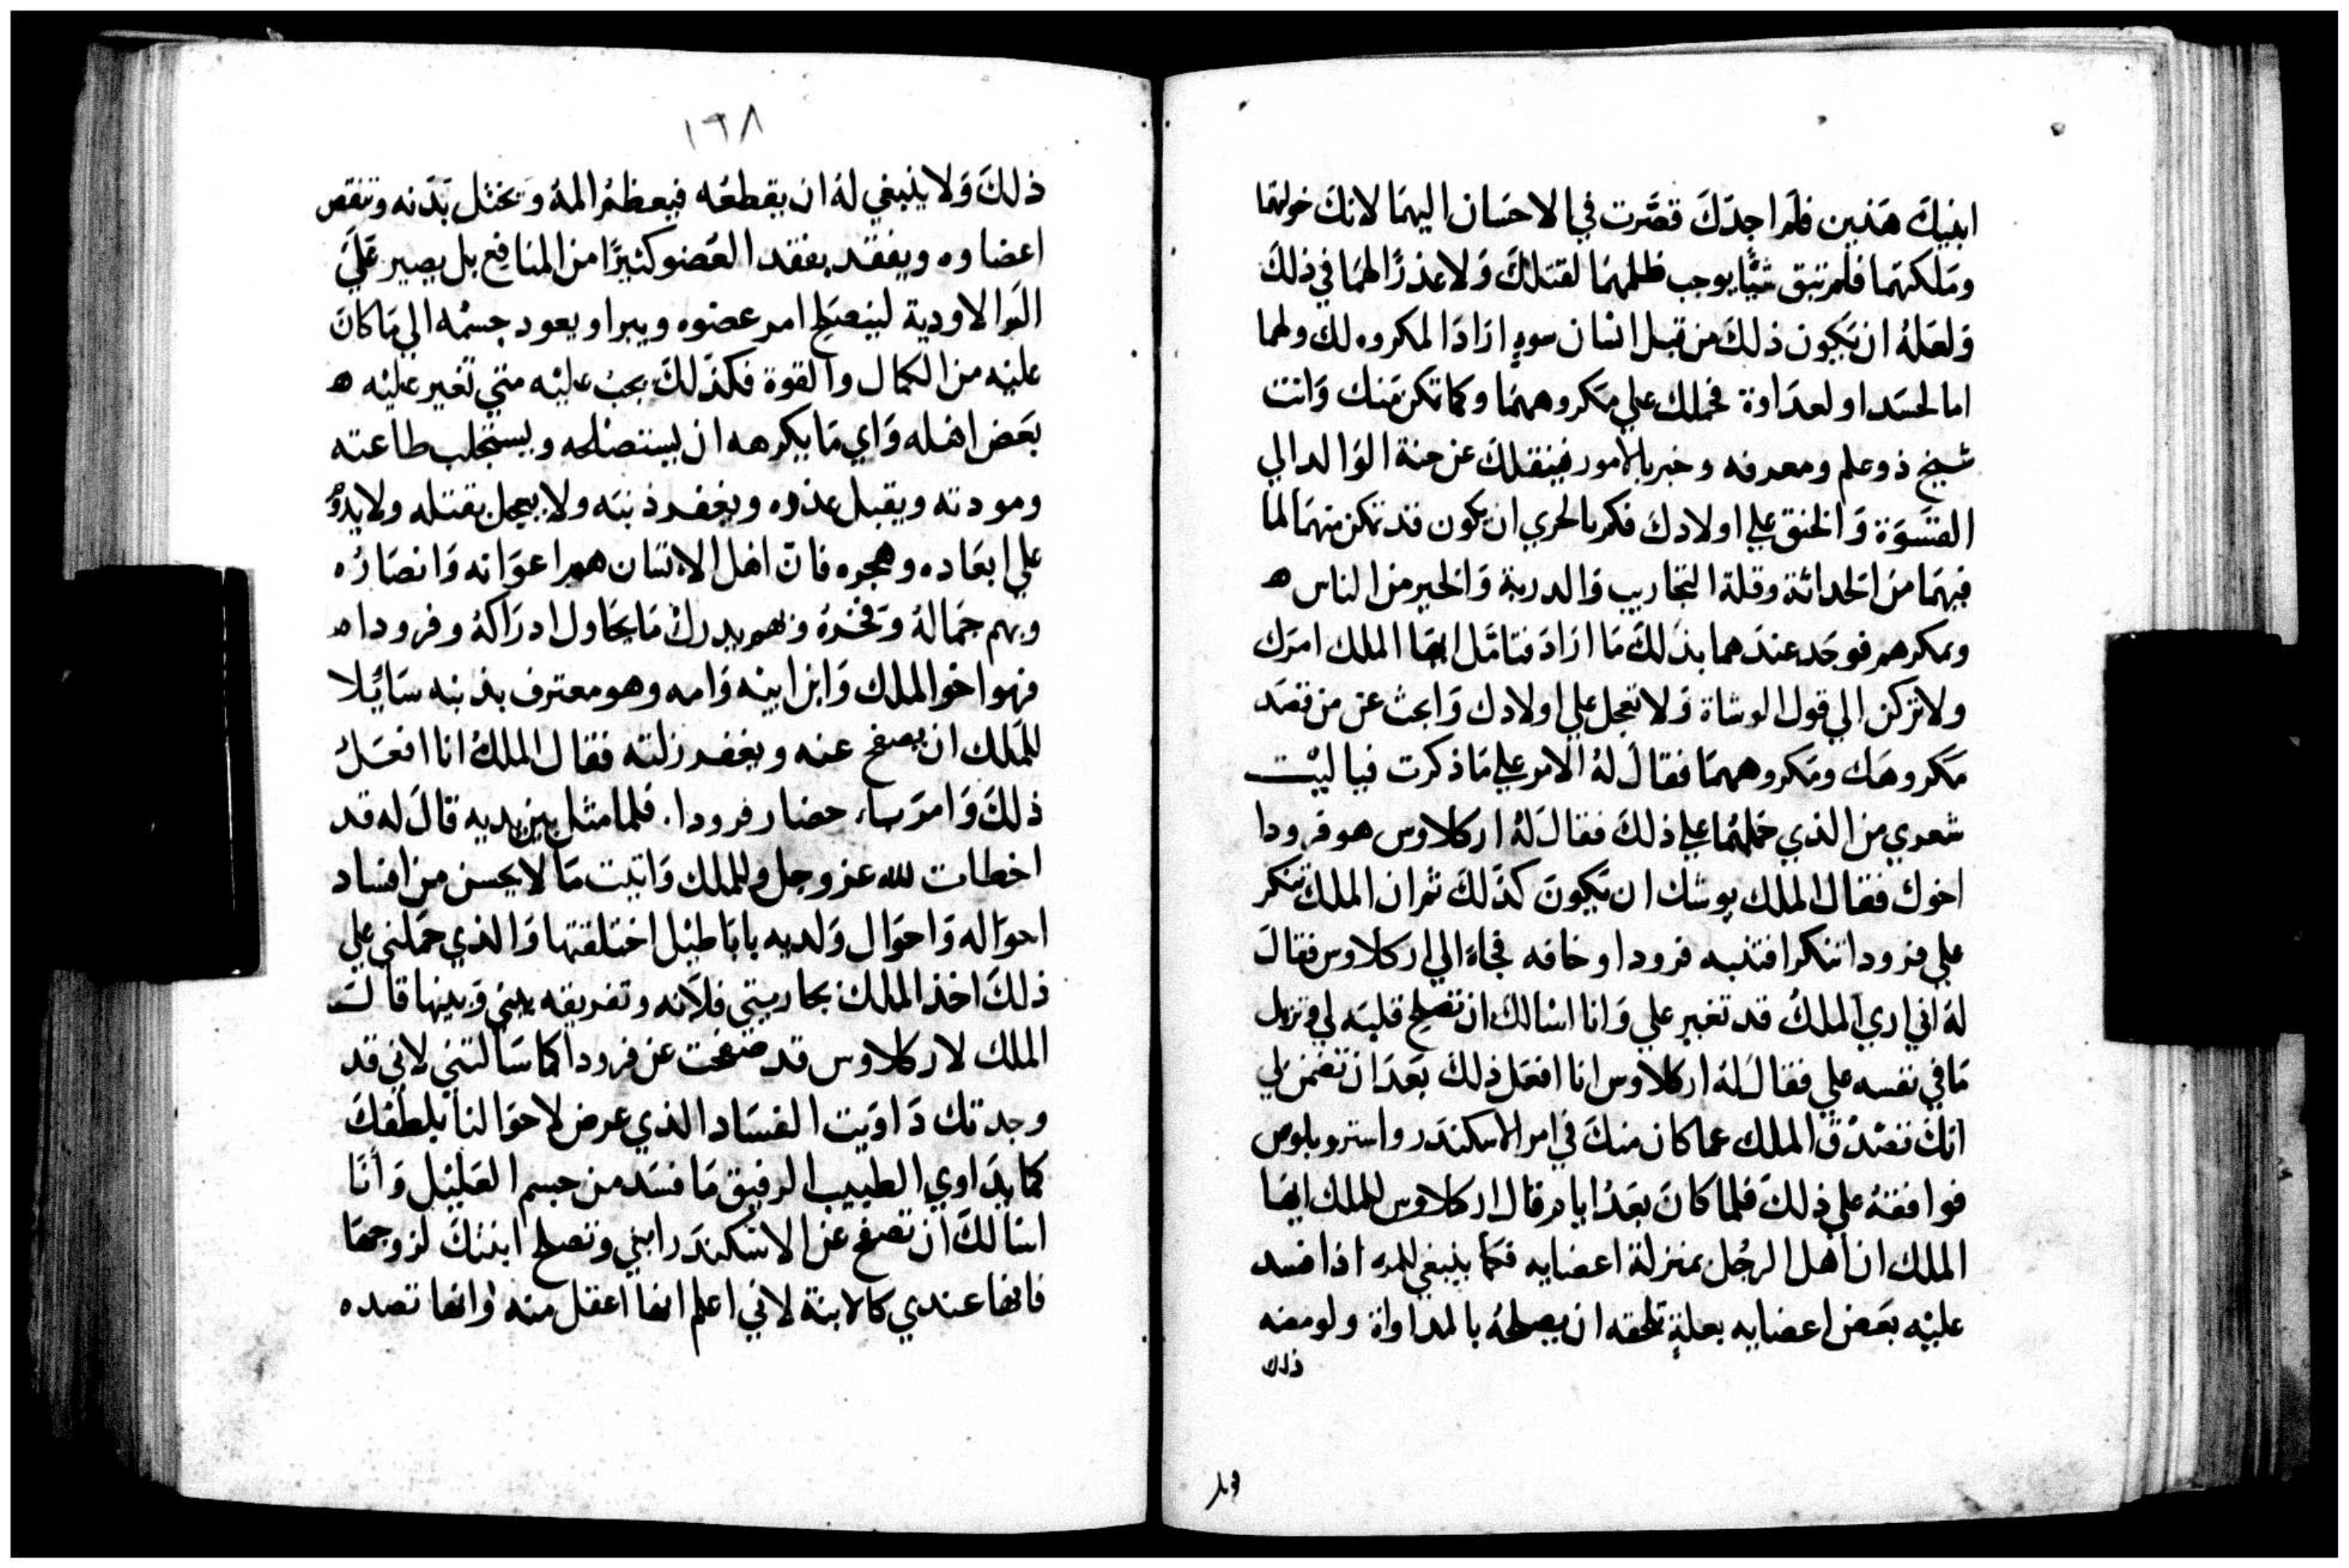 ابنيك هذين فلم اجدك قصّرت في الاحسان اليهما لانك خولتهما
وملكتهما فلم تبق شيًا يوجب ظلمهما لقتلك ولا عذرًا لهما في ذلك
ولعله ان يكون ذلك من قبل انسان سوءٍ اراد المكروه لك ولهما
اما لحسد او لعداوة فحملك علي مكروههما وكما تكن منك وانت
شيخ ذو علم ومعرفه وخبر بالامور فينقلك عن حنة الوالد الي
القسوة والحنق علي اولادك فكم بالحري ان يكون قد تمكن منهما لما
فيهما من الحداثة وقلة التجاريب والدربة والخبر من الناس ه
ومكرهم فوجد عندهما بذلك ما اراد فتامل ايها الملك امرك
ولا تركن الي قول الوشاة ولا تعجل علي اولادك وابحث عن من قصد
مكروهك ومكروههما فقال له الامر علي ما ذكرت فيا ليت
شعري من الذي حملهما علي ذلك فقال له اركلاوس هو فرودا
اخوك فقال الملك يوشك ان يكون كذلك ثم ان الملك تنكر
علي فرودا تنكرا فتنبه فرودا وخافه فجاء الي اركلاوس فقال
له اني اري الملك قد تغير علي وانا اسالك ان تصلح قلبه لي وتزيل
ما في نفسه علي فقال له اركلاوس انا افعل ذلك بعد ان تضمن لي
انك تصدق الملك عما كان منك في امر الاسكندر واستروبلوس
فوافقه علي ذلك فلما كان بعد ايام قال اركلاوس للملك ايها
الملك ان اهل الرجل بمنزلة اعضايه فكما ينبغي للمرء اذا فسد
عليه بعض اعضايه بعلةٍ تلحقه ان يصلحه بالمداواة ولو مضه
ذلك
١٦٨
ذلك ولا ينبغي له ان يقطعه فيعظم المه ويختل بدنه وتنقص
اعضاوه ويفقد بفقد العضو كثيرًا من المنافع بل يصير علي
الم الاودية لينصلح امر عضوه ويبرا ويعود جسمه الي ما كان
عليه من الكمال والقوة فكذلك يجب عليه متي تغير عليه ه
بعض اهله واي ما يكرهه ان يستصلحه ويستجلب طاعته
ومودته ويقبل عذره ويغفر ذنبه ولا يعجل بقتله ولا
علي ابعاده وهجره فان اهل الانسان هم اعوانه وانصاره
وبهم جماله وفخره وبهم يدرك ما يحاول ادراكه وفرودا ه
فهو اخو الملك وابن ابيه وامه وهو معترف بذنبه سايلا
للملك ان يصفح عنه ويغفر زلته فقال الملك انا افعل
ذلك وامر باحضار فرودا. فلما مثل بين يديه قال له قد
اخطات لله عز وجل وللملك واتيت ما لا يحسن من افساد
احواله واحوال ولديه باباطيل اختلقتها والذي حملني علي
ذلك اخذ الملك بجاريتي فلانه وتفريقه بيني وبينها قالـ
الملك لاركلاوس قد صفحت عن فرودا كما سالتني لاني قد
وجدتك داويت الفساد الذي عرض لاحوالنا بلطفك
كما يداوي الطبيب الرفيق ما فسد من جسم العليل وانا
اسالك ان تصفح عن الاسكندر ابني وتصلح ابنتك لزوجها
فانها عندي كالابنة لاني اعلم انها اعقل منه وانها تصده